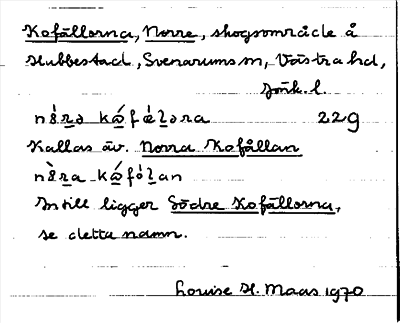 Kofällorna, Norre, skogsområde å
Hubbestad, Svenarums sn, Västra hd,
Jönk. l.
22g
Kallas äv. Norra Kofållan
Intill ligger Södre Kofällorna,
se detta namn.
Louise H. Maas 1970